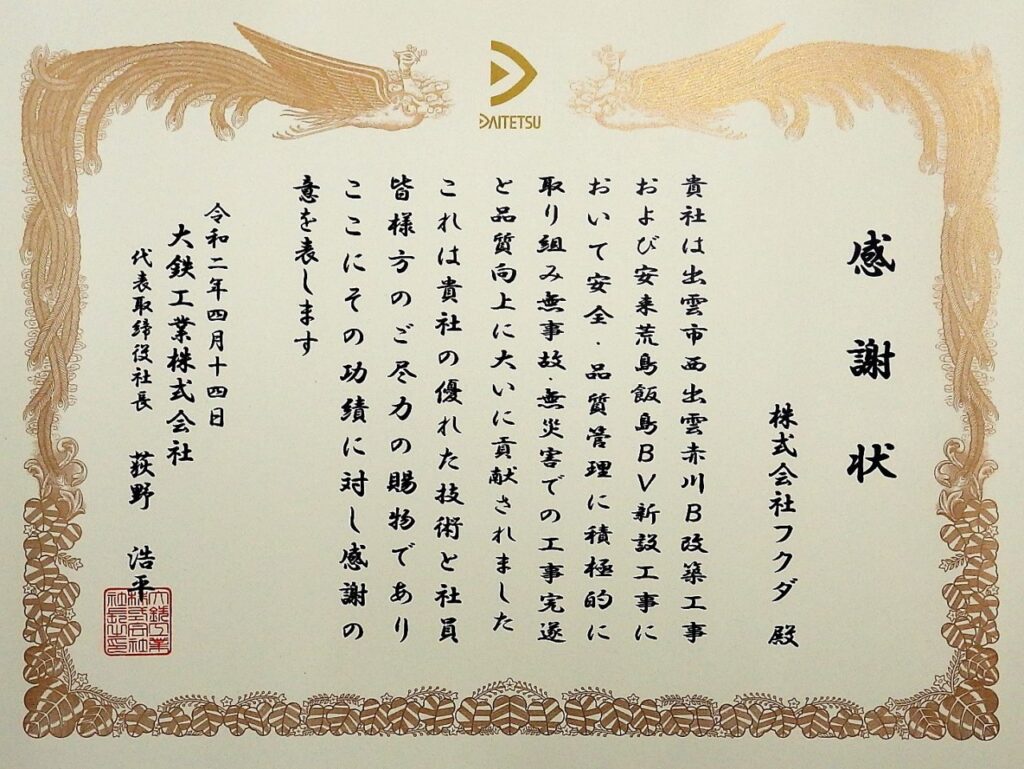 DAITETSU
感謝状
株式会社フクダ 殿
貴社は出雲市西出雲赤川B改築工事
および安来荒島飯島BV新設工事に
おいて安全・品質管理に積極的に
取り組み無事故・無災害での工事完遂
と品質向上に大いに貢献されました
これは貴社の優れた技術と社員
皆様方のご尽力の賜物であり
ここにその功績に対し感謝の
意を表します
令和二年四月十四日
大鉄工業株式会社
代表取締役社長 荻野 浩平